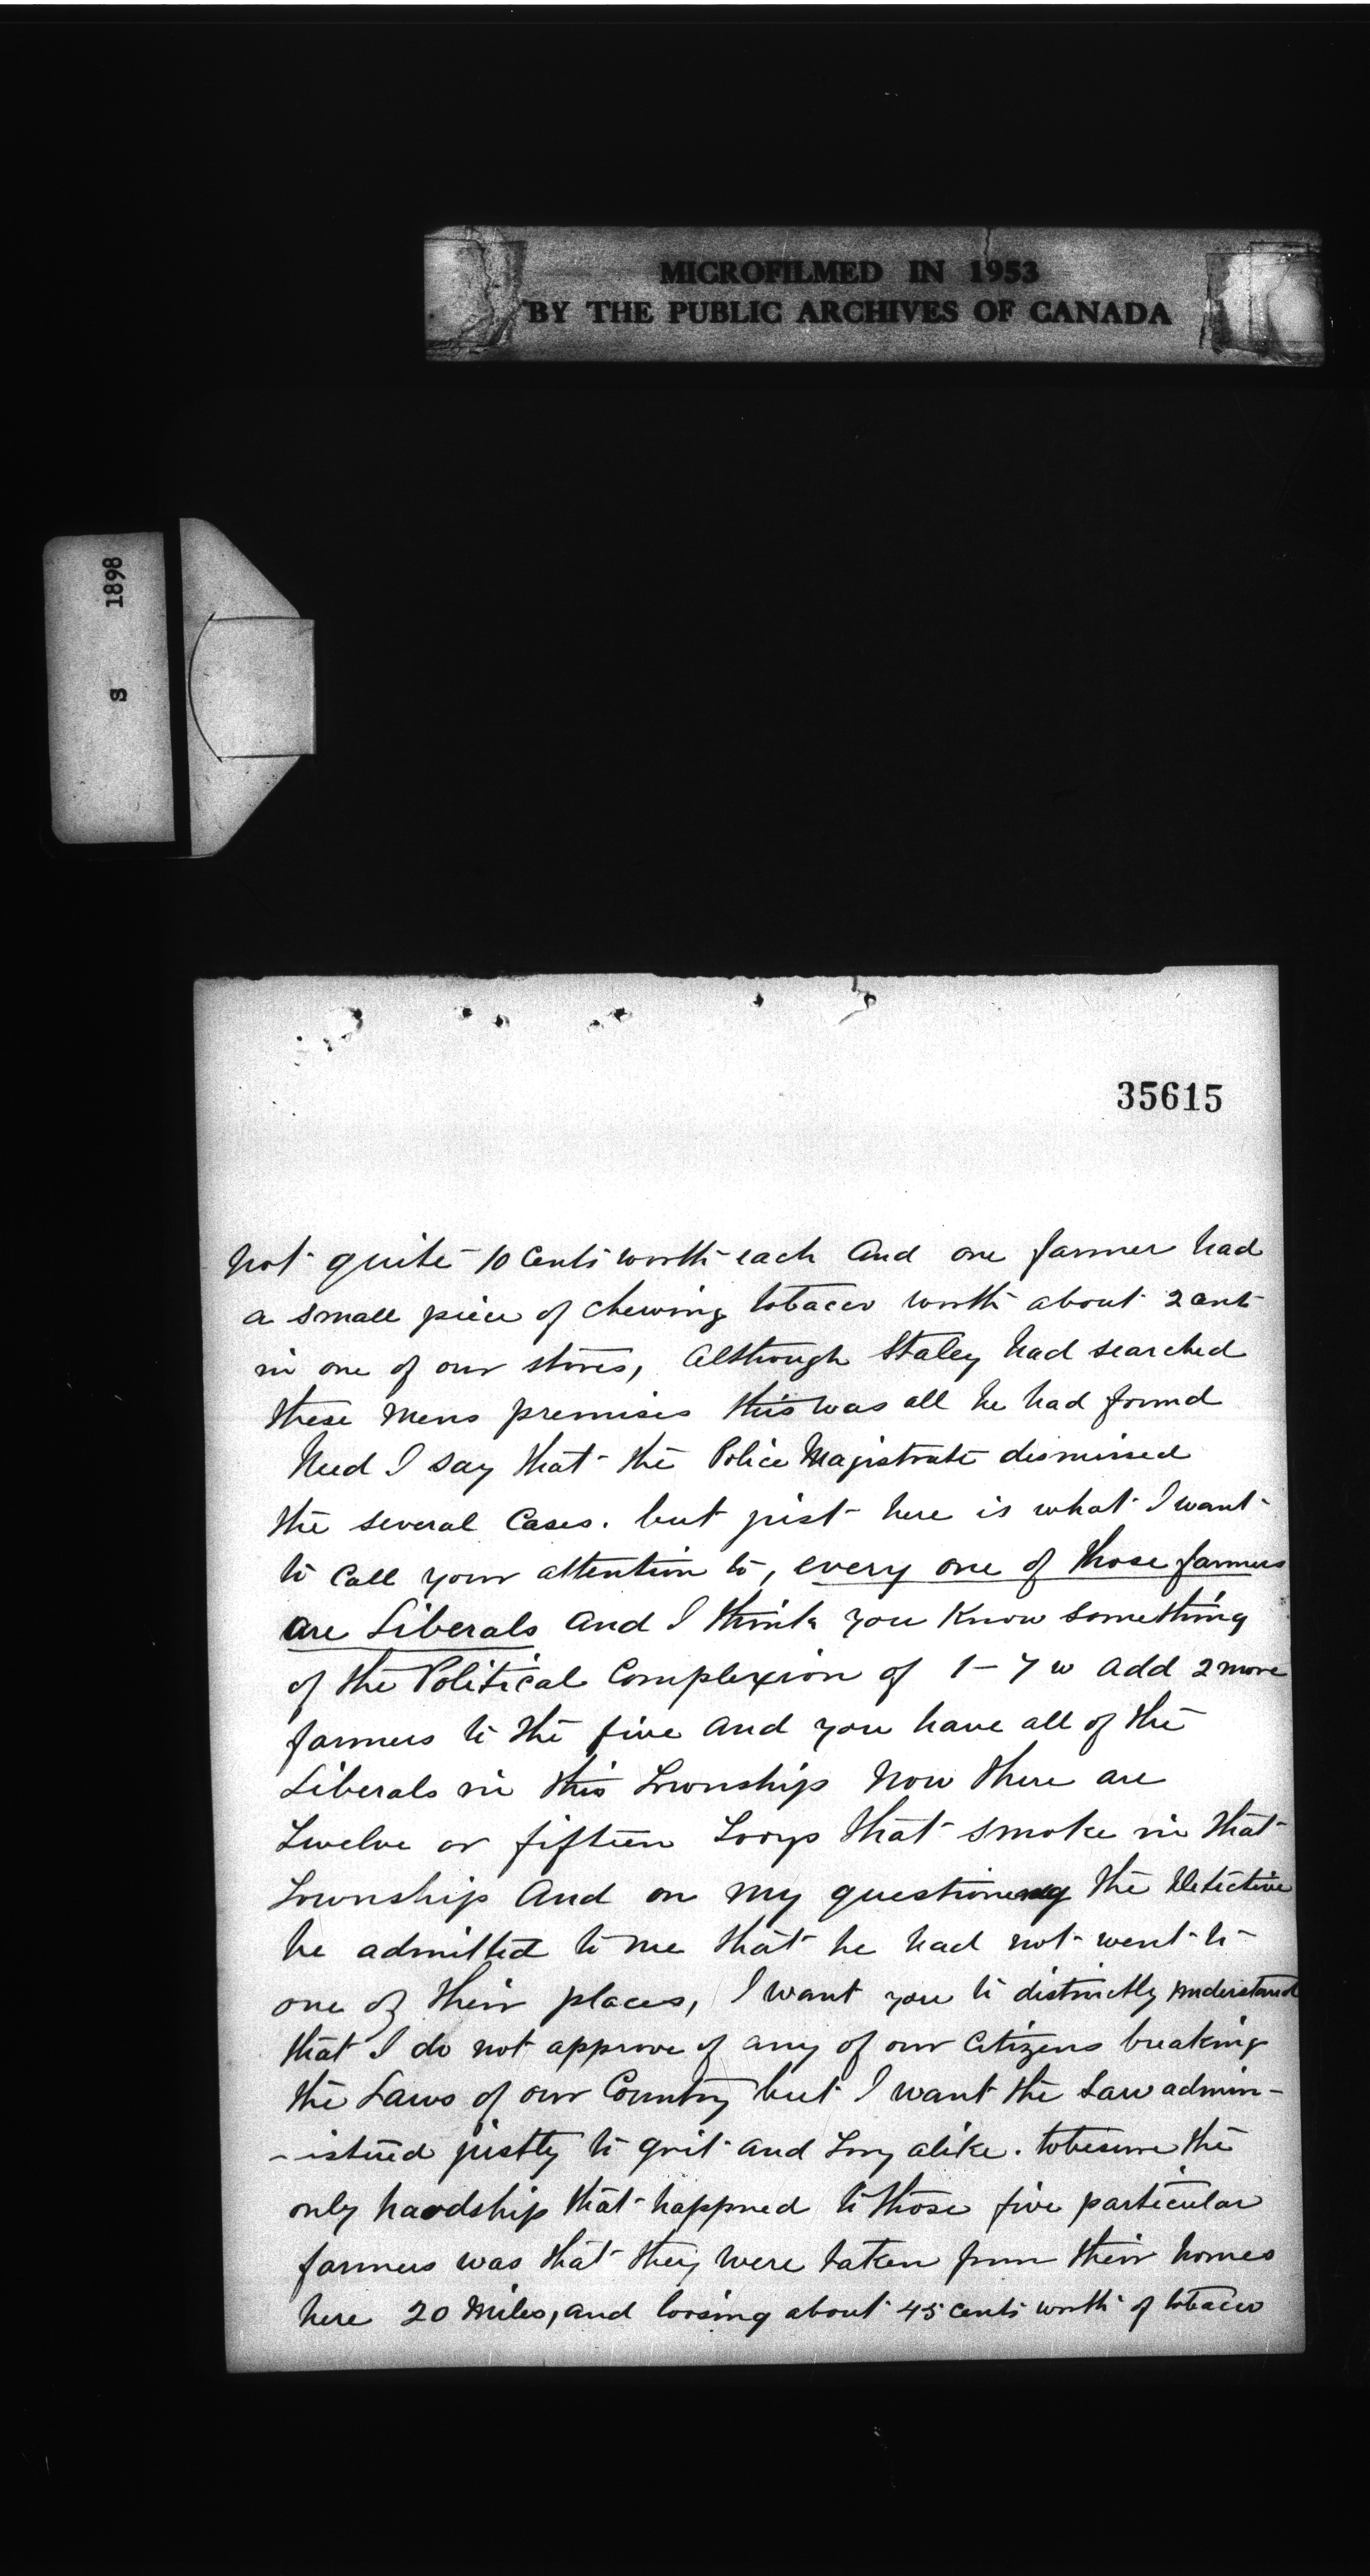 MICROFILMED IN 1953
BY THE PUBLIC ARCHIVES OF CANADA
S 1898
35615
not quite 10 cents worth each And one farmer had
a small piece of chewing tobacco worth about 2 cents
in one of our stores, Although Staley had searched
these mens premises this was all he had found
Need I say that the Police Magistrate dismissed
the several Cases. but just here is what I want
to call your attention to, every one of those farmers
are Liberals And I think you Know something
of the Political Complexion of 1-7 w Add 2 more
farmers to the five And you have all of the
Liberals in this Township Now there are
Twelve or fifteen Torys that smoke in that
Township And on my questioning the Detective
he admitted to me that he had not went to
one of their places, I want you to distinctly understand
that I do not approve of any of our Citizens breaking
the Laws of our Country but I want the Law admin-
-istered justly to grit and Tory alike. to be sure the
only hardship that happned to those five particular
farmers was that they were taken from their homes
here 20 Miles, and loosing about 45 cents worth of tobacco